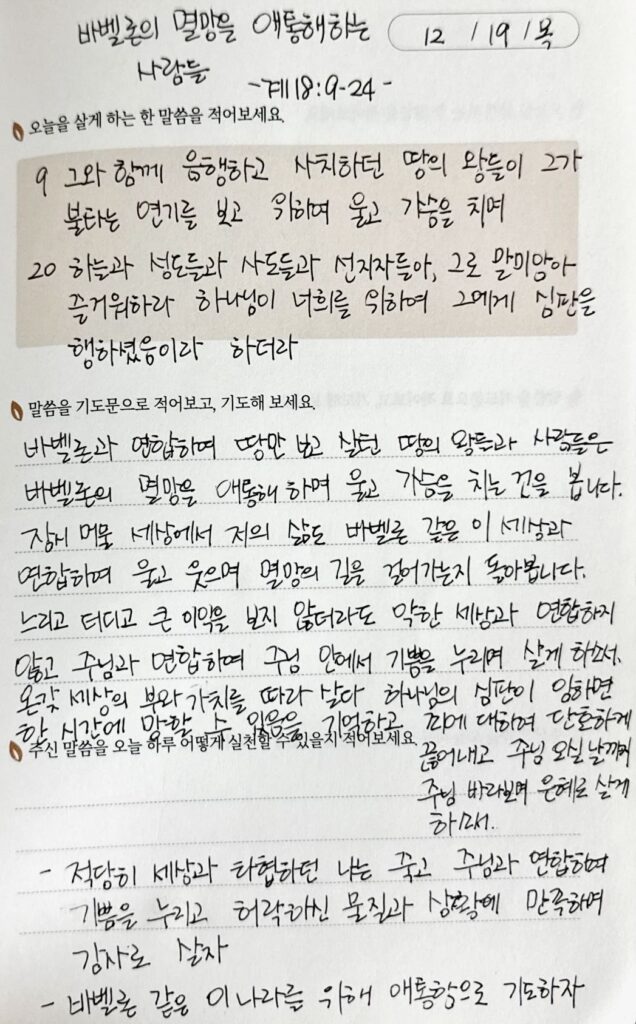 바벨론의 멸망을 애통해하는
12 / 19 / 목
사람들
- 계18:9-24 -
오늘을 살게 하는 한 말씀을 적어보세요.
9 그와 함께 음행하고 사치하던 땅의 왕들이 그가
불타는 연기를 보고 위하여 울고 가슴을 치며
20 하늘과 성도들과 사도들과 선지자들아, 그로 말미암아
즐거워하라 하나님이 너희를 위하여 그에게 심판을
행하셨음이라 하더라
말씀을 기도문으로 적어보고, 기도해 보세요.
바벨론과 연합하며 땅만 보고 살던 땅의 왕들과 사람들은
바벨론의 멸망을 애통해 하며 울고 가슴을 치는 것을 봅니다.
잠시 머물 세상에서 저의 삶도 바벨론 같은 이 세상과
연합하며 울고 웃으며 멸망의 길을 걸어가는지 돌아봅니다.
느리고 더디고 큰 이익을 보지 않더라도 악한 세상과 연합하지
않고 주님과 연합하며 주님 안에서 기쁨을 누리며 살게 하소서.
온갖 세상의 부와 가치를 따라 살다 하나님의 심판이 임하면
한 시간에 망할 수 있음을 기억하고 죄에 대하여 단호하게
끊어내고 주님 오실 날까지
주님 바라보며 은혜로 살게
하소서.
주신 말씀을 오늘 하루 어떻게 실천할 수 있을지 적어보세요.
- 적당히 세상과 타협하던 나는 죽고 주님과 연합하여
기쁨을 누리고 허락하신 물질과 상황에 만족하며
감사로 살자
- 바벨론 같은 이 나라를 위해 애통함으로 기도하자